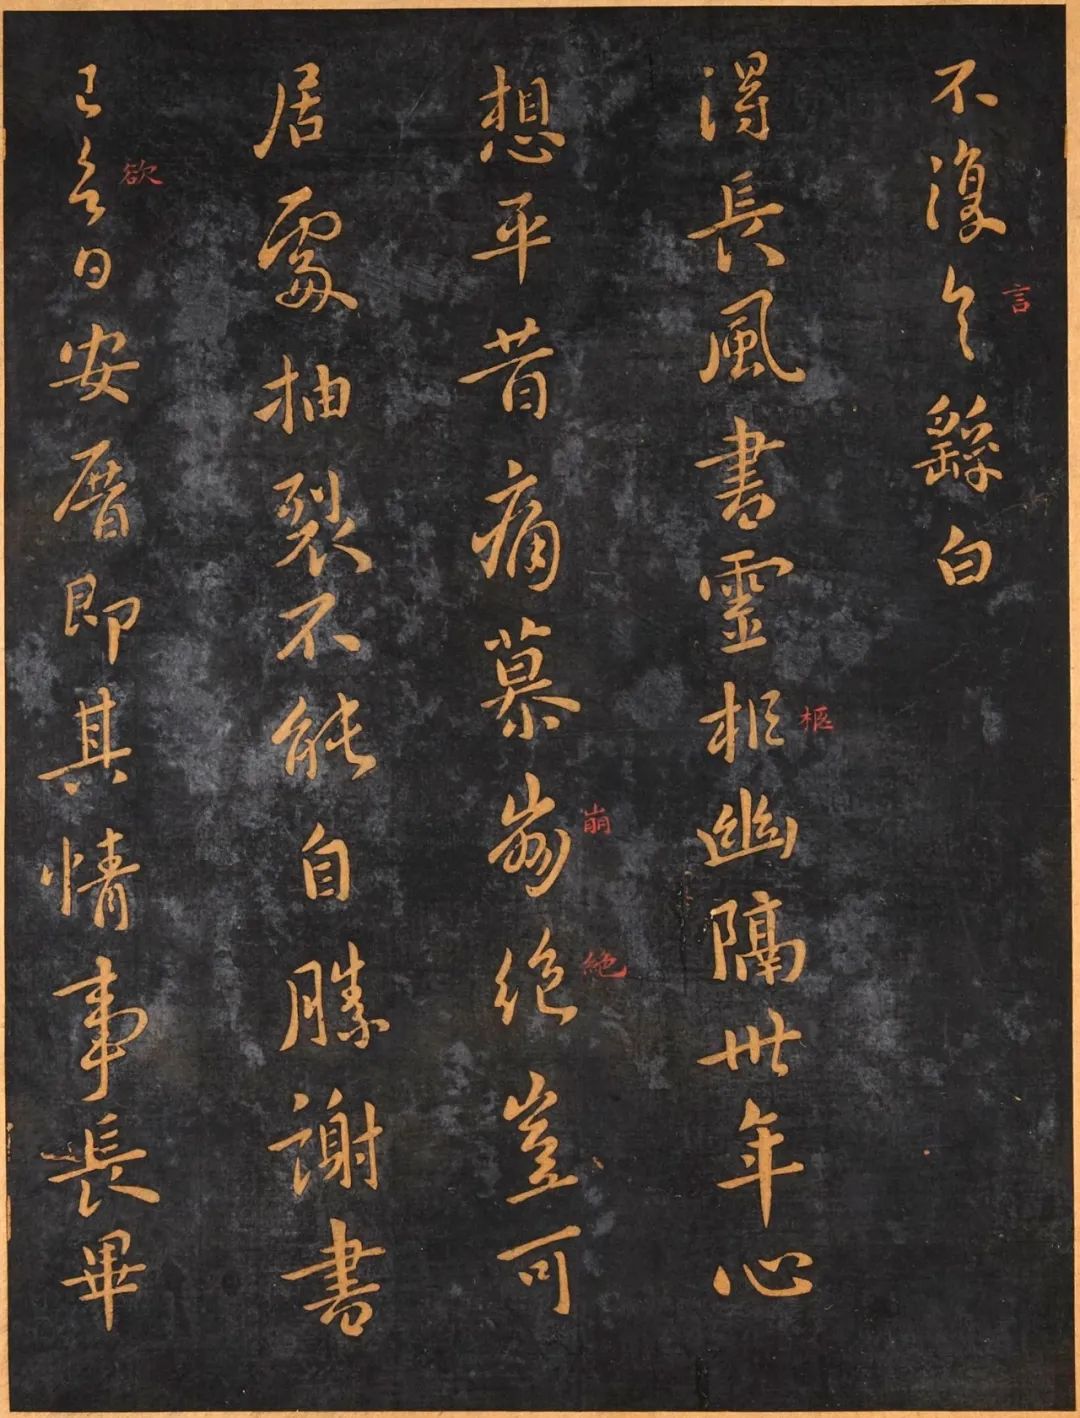 不復言繇白
言
得長風書靈柩幽隔卅年心
柩
想平昔痛慕崩絶豈可
崩
絶
居處抽裂不能自勝謝書
已欲日安厝即其情事長畢
欲